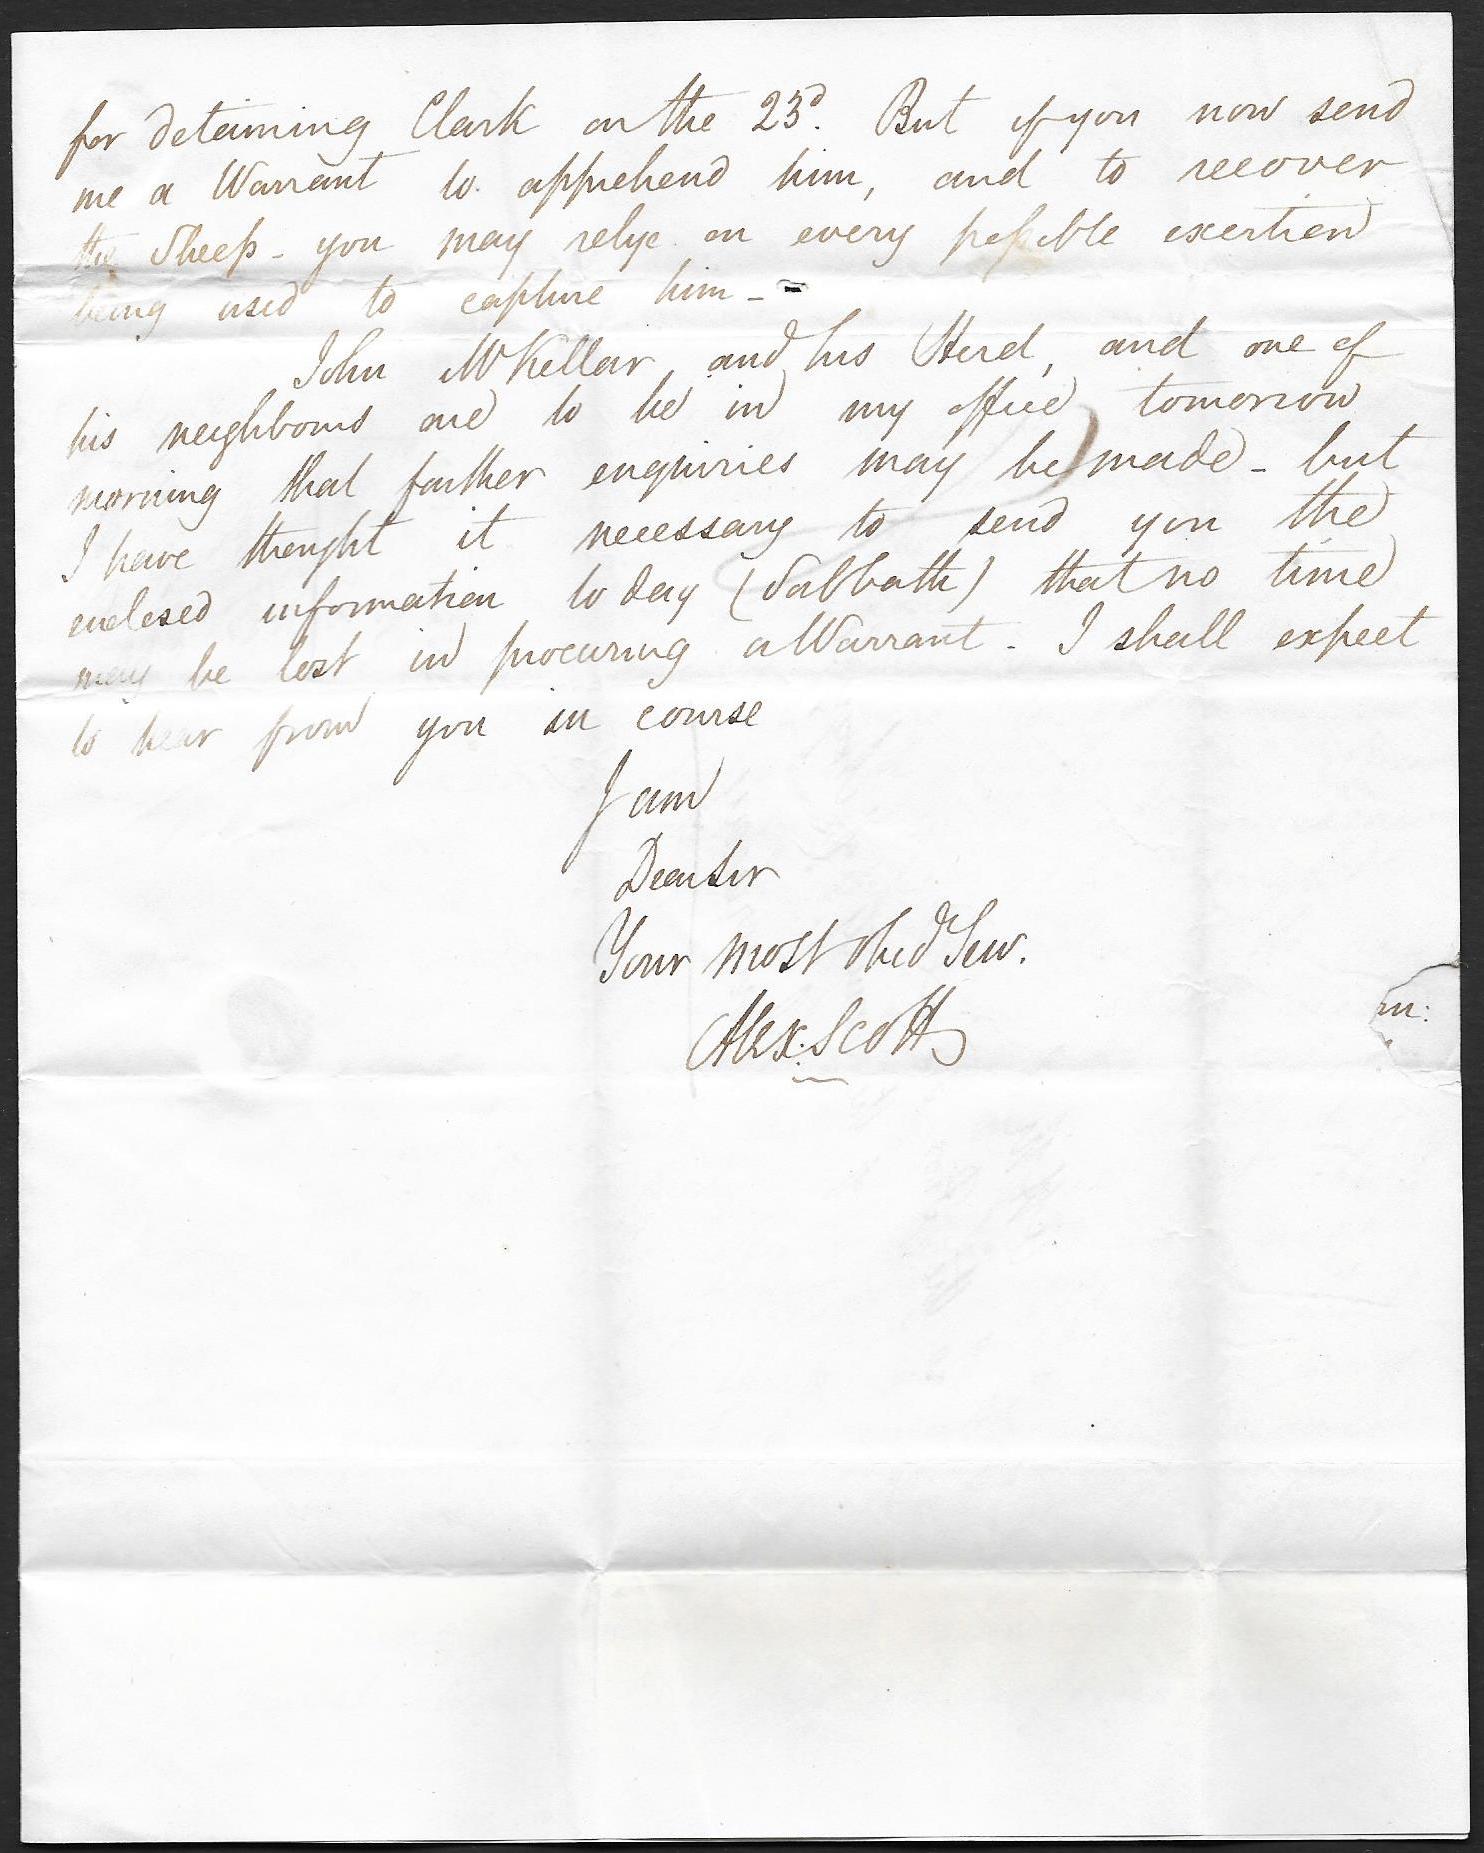 for detaining Clark on the 23d. But if you now send
me a Warrant to apprehend him, and to recover
the Sheep - you may relye on every possible exertion
being used to capture him -
John McKellar and his Herd, and one of
his neighbours are to be in my office tomorrow
morning that farther enquiries may be made - but
I have thought it necessary to send you the
enclosed information to day (Sabbath) that no time
may be lost in procuring a Warrant - I shall expect
to hear from you in course
I am
Dear Sir
Your most obed Serv.
Alex: Scott